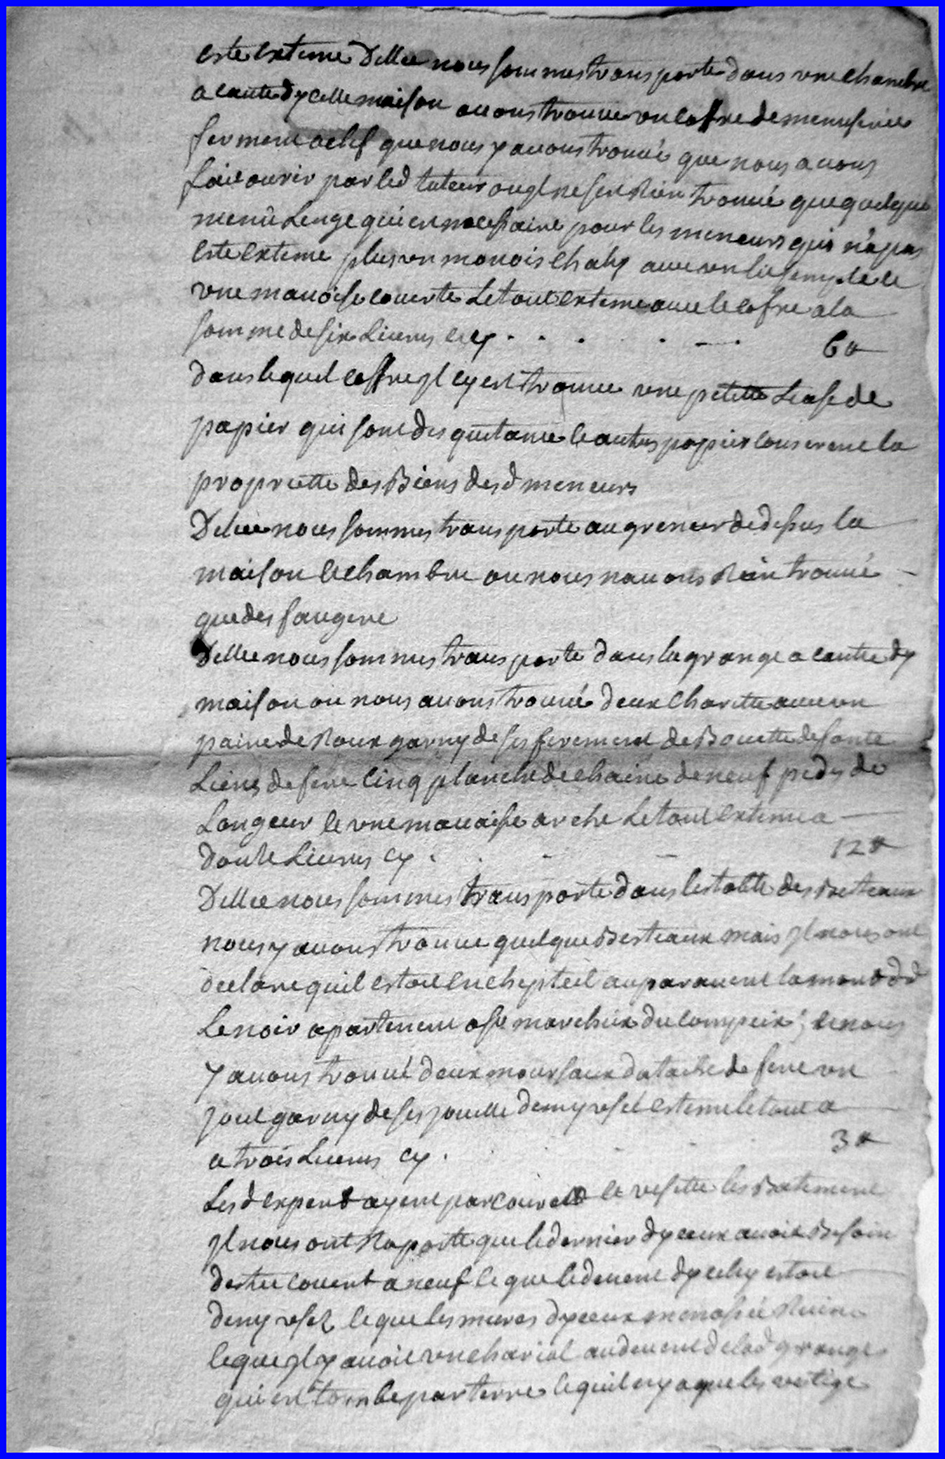 este extime Dillec nous sommes transporte dans une chambre
a cautte dycelle maison avons trouve un coffre de menuserie
ferment a clef que nous y avons trouvé que nous avons
faic ouvrir par led tuteur ougl ne sen Rien trouvé que quelque
menû Lenge qui en necessaire pour les meneurs qui n'a pas
este extime plus un monois chaly avec un
une mauvaise couverte Le tout extime avec le cofre a la
somme de six Livres cy . . . . . 6#
dans lequel coffre jl cy est trouve une petitte Liasse de
papier qui sont des quitance le autres papier conserent la
propriette des Biens desd meneurs
Dillec nous sommes transporte au grenier dedesus la
maison le chambre ou nous navons Rien trouvé
que des faugere
Dillec nous sommes transporte dans la grange a cautte dy
maison ou nous avons trouvé deux charette avec un
paire de Roux garny de ses ferement de Bouette de fonte
Liens de fere cinq planche de chaine de neuf pieds de
Longeur le une mauvaise arche Le tout extime a
douse Livres cy . 12#
Dillec nous sommes transporte dans lestable des Bestiaux
nous y avons trouve quelque Bestiaux mais jl nous ont
declare quil estoit en chepteil auparavent la mort dud
Lenoir apartenent a Mr marchix du compeix ; le nous
y avons trouvé deux moursaux datache de fere un
joul garny de ses jouille demy usel estime le tout a
a trois Livres cy . 3#
Lesd expert ayent parcouru le vesitte les Batiment
jl nous ont Raportte que le dernier dyceux avoit Besoin
destre couvert a neuf le que le devent dyceluy estoit
demy usel le que les mures dyceux menassée Ruine
le que jl y avoit un chariol au devent de lad grange
qui est tombe par terre le quil ny a que les vestige